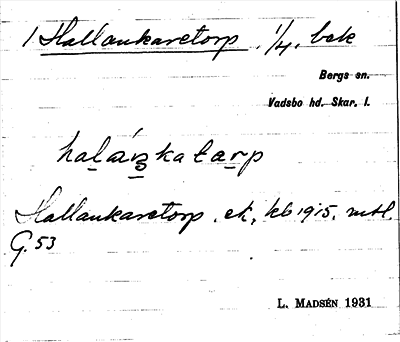 1 Hallankaretorp 1/4, bek
Bergs sn.
Vadsbo hd. Skar. l.
Hallankaretorp, ek, kb 1915, mtl.
G. 53
L. MADSÉN 1931